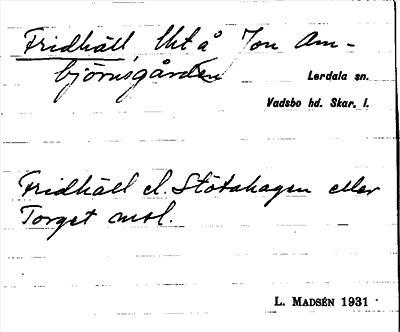 Fridhäll, lht å Jon Arn-
björnsgården
Lerdala sn.
Vadsbo hd. Skar. l.
Fridhäll el. Stötahagen eller
Torget
L. MADSÉN 1931